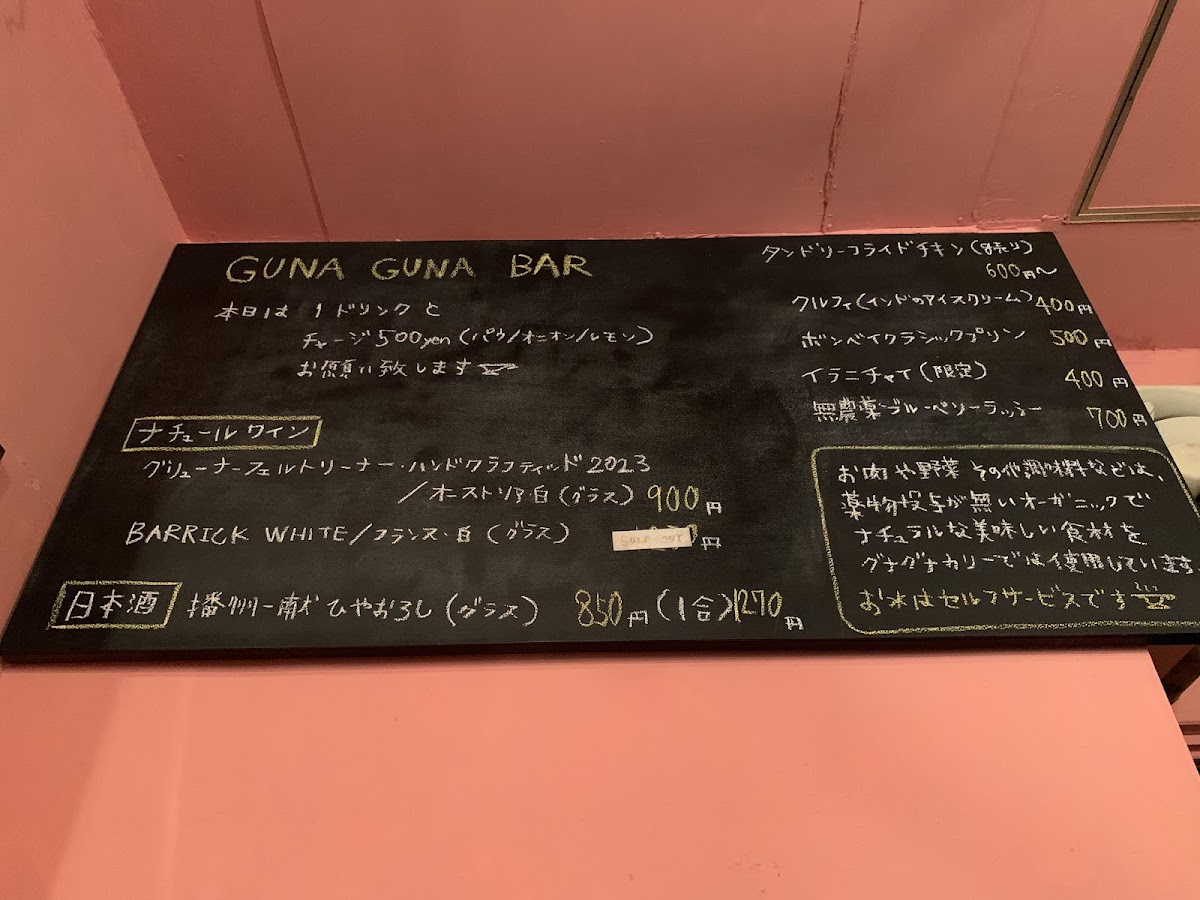 GUNA GUNA BAR
本日は 1ドリンクと
チャージ 500yen (パウ/オニオン/レモン)
お願い致します
ナチュールワイン
グリューナーフェルトリーナー・ハンドクラフティッド 2023
/オーストリア・白 (グラス) 900円
BARRICK WHITE/フランス・白 (グラス) SOLD OUT 円
日本酒 播州一献 ひやおろし (グラス) 850円 (1合) 1270円
タンドリーフライドチキン
600円~
クルフィ (インドのアイスクリーム) 400円
ボンベイクラシックプリン 500円
イラニチャイ (限定) 400円
無農薬ブルーベリーラッシー 700円
お肉や野菜 その他調味料などは、
薬物投与が無いオーガニックで
ナチュラルな美味しい食材を
グナグナカリーでは使用しています。
お水はセルフサービスです